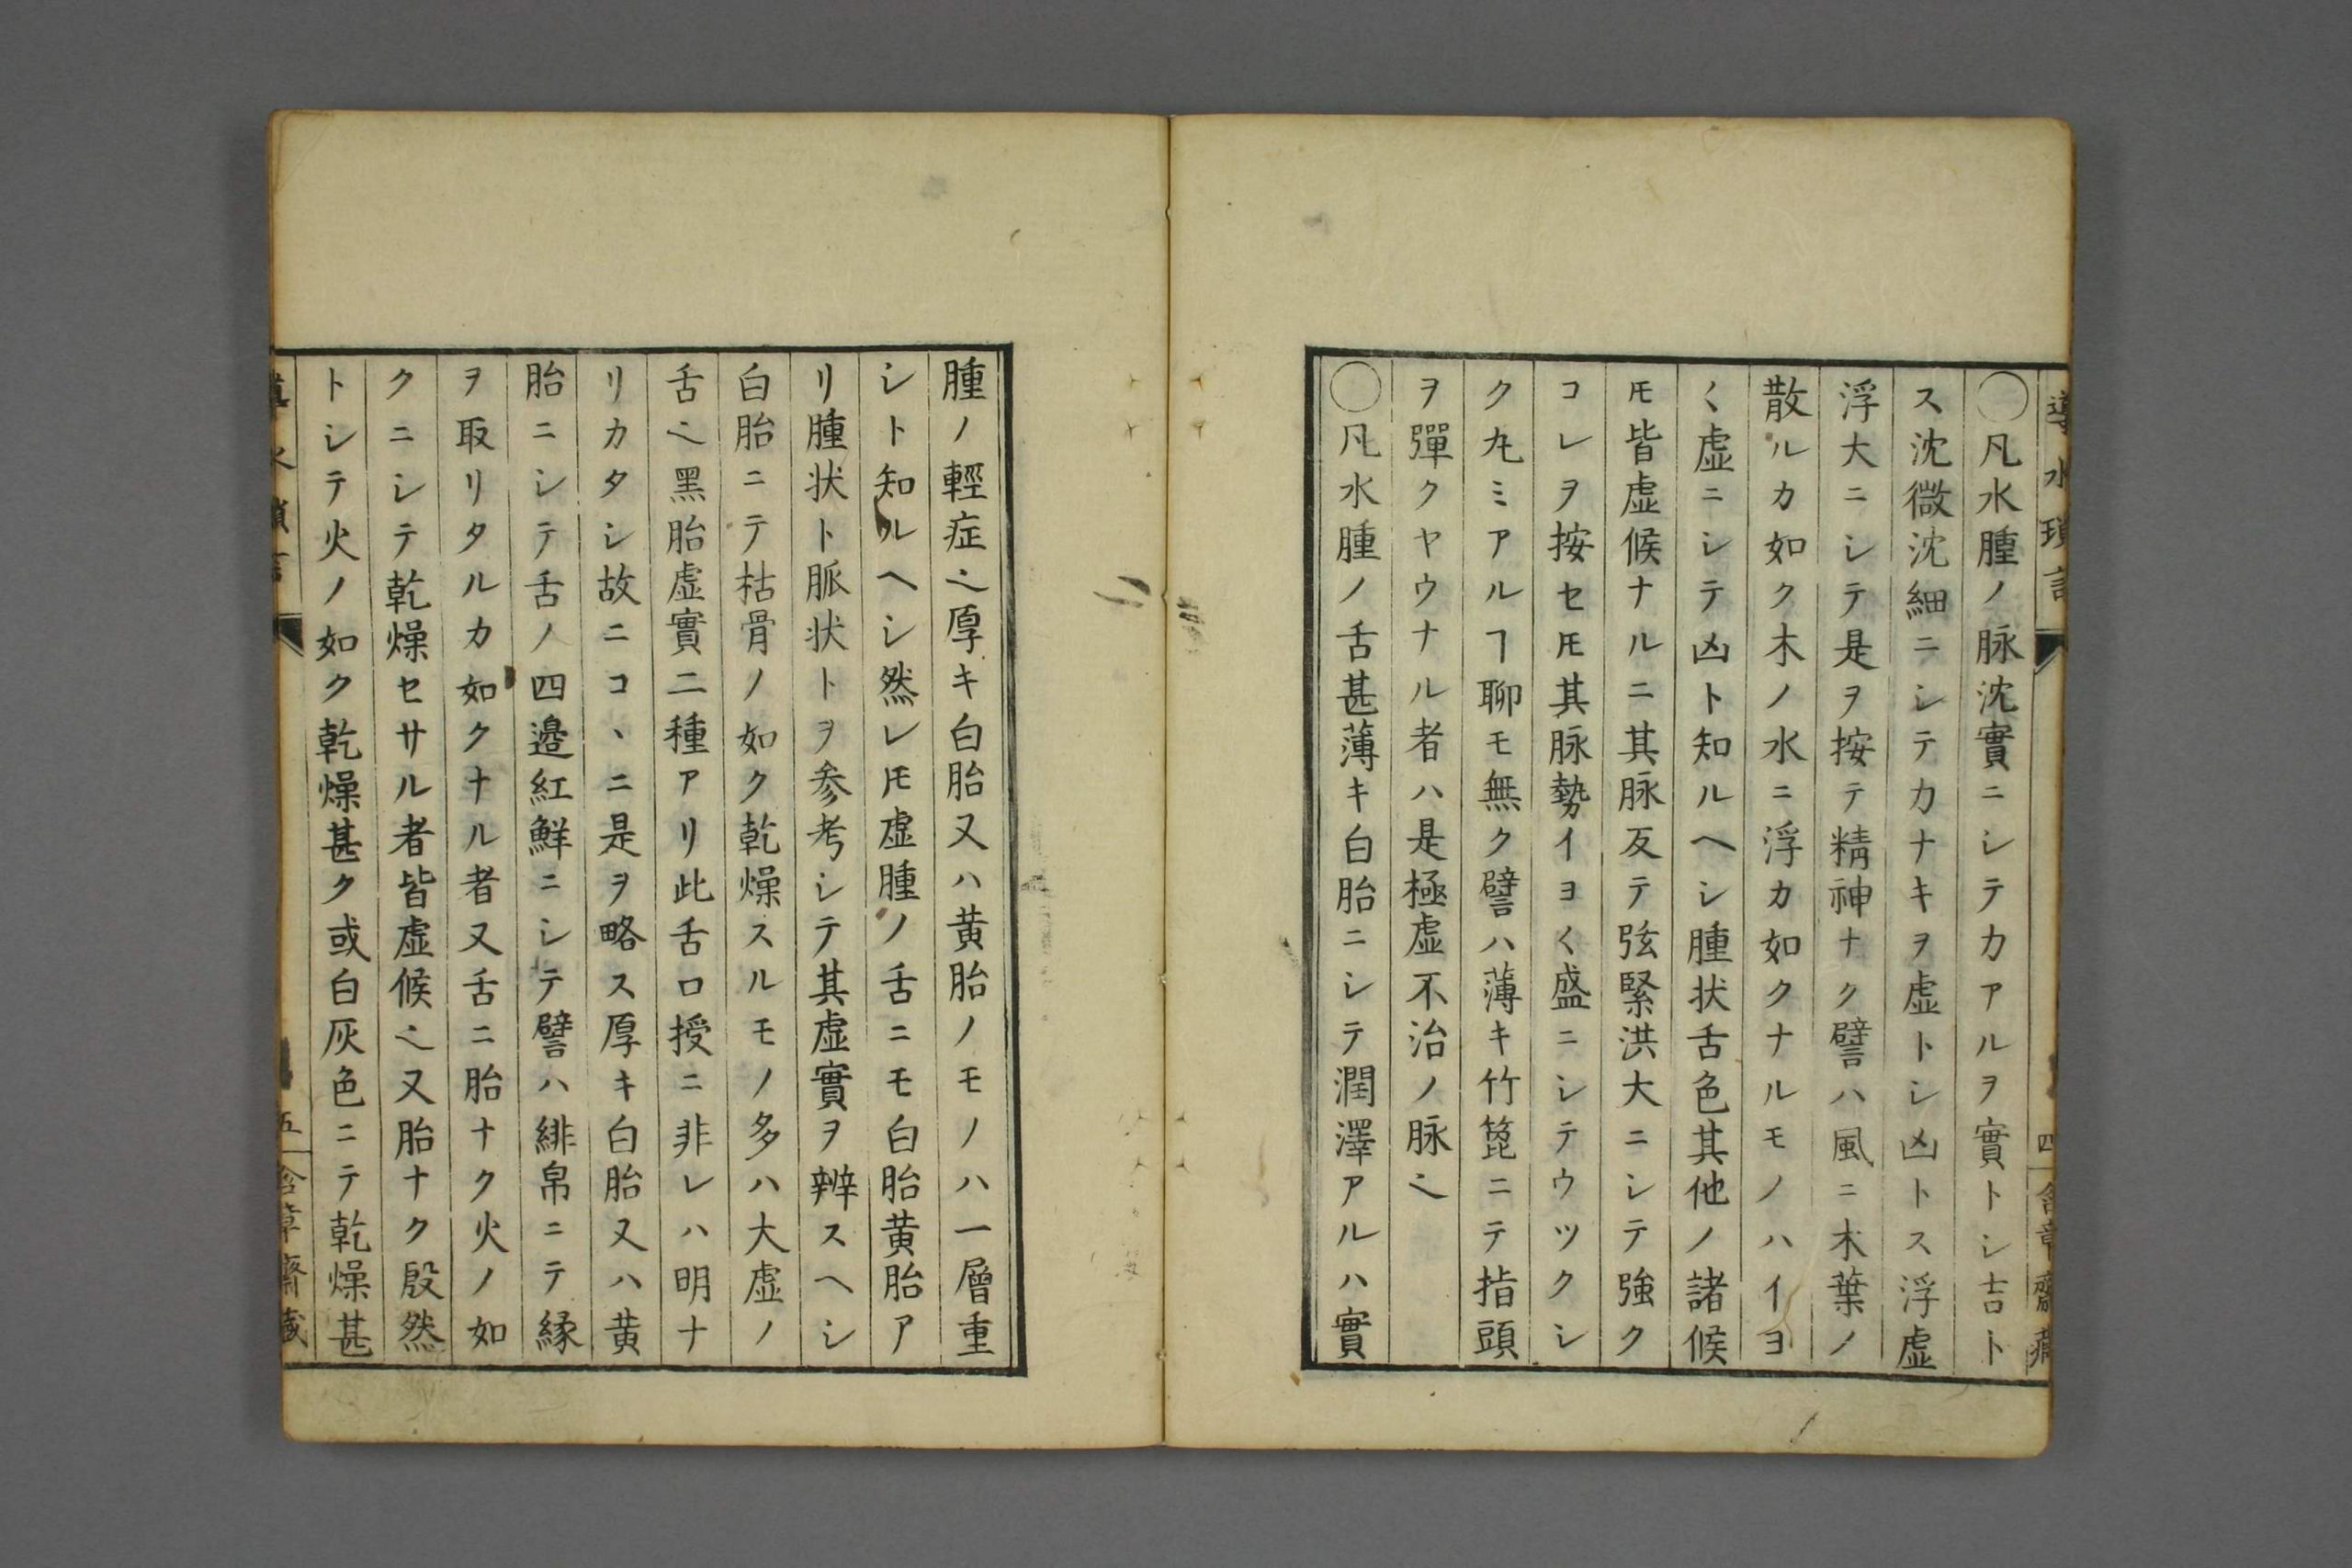 導水瑣言
四
含章齋藏
〇凡水腫ノ脉沈實ニシテカアルヲ實トシ吉ト
ス沈微沈細ニシテカナキヲ虚トシ凶トス浮虚
浮大ニシテ是ヲ按テ精神ナク譬ハ風ニ木葉ノ
散ルカ如ク木ノ水ニ浮カ如クナルモノハイヨ
く虚ニシテ凶ト知ルヘシ腫状舌色其他ノ諸候
𪜈皆虚候ナルニ其脉反テ弦緊洪大ニシテ強ク
コレヲ按セ𪜈其脉勢イヨく盛ニシテウツクシ
ク九ミアルヿ聊モ無ク譬ハ薄キ竹箆ニテ指頭
ヲ彈クヤウナル者ハ是極虚不治ノ脉㆑
〇凡水腫ノ舌甚薄キ白胎ニシテ潤澤アルハ實
腫ノ輕症㆑厚キ白胎又ハ黄胎ノモノハ一層重
シト知ルヘシ然レ𪜈虚腫ノ舌ニモ白胎黄胎ア
リ腫状ト脈状トヲ参考シテ其虚實ヲ辨スヘシ
白胎ニテ枯骨ノ如ク乾燥スルモノ多ハ大虚ノ
舌㆑黑胎虚實二種アリ此舌口授ニ非レハ明ナ
リカタシ故ニコヽニ是ヲ略ス厚キ白胎又ハ黄
胎ニシテ舌ノ四邉紅鮮ニシテ譬ハ緋帛ニテ縁
ヲ取リタルカ如クナル者又舌ニ胎ナク火ノ如
クニシテ乾燥セサル者皆虚候㆑又胎ナク殷然
トシテ火ノ如ク乾燥甚ク或白灰色ニテ乾燥甚
導水瑣言
五
含章齋藏